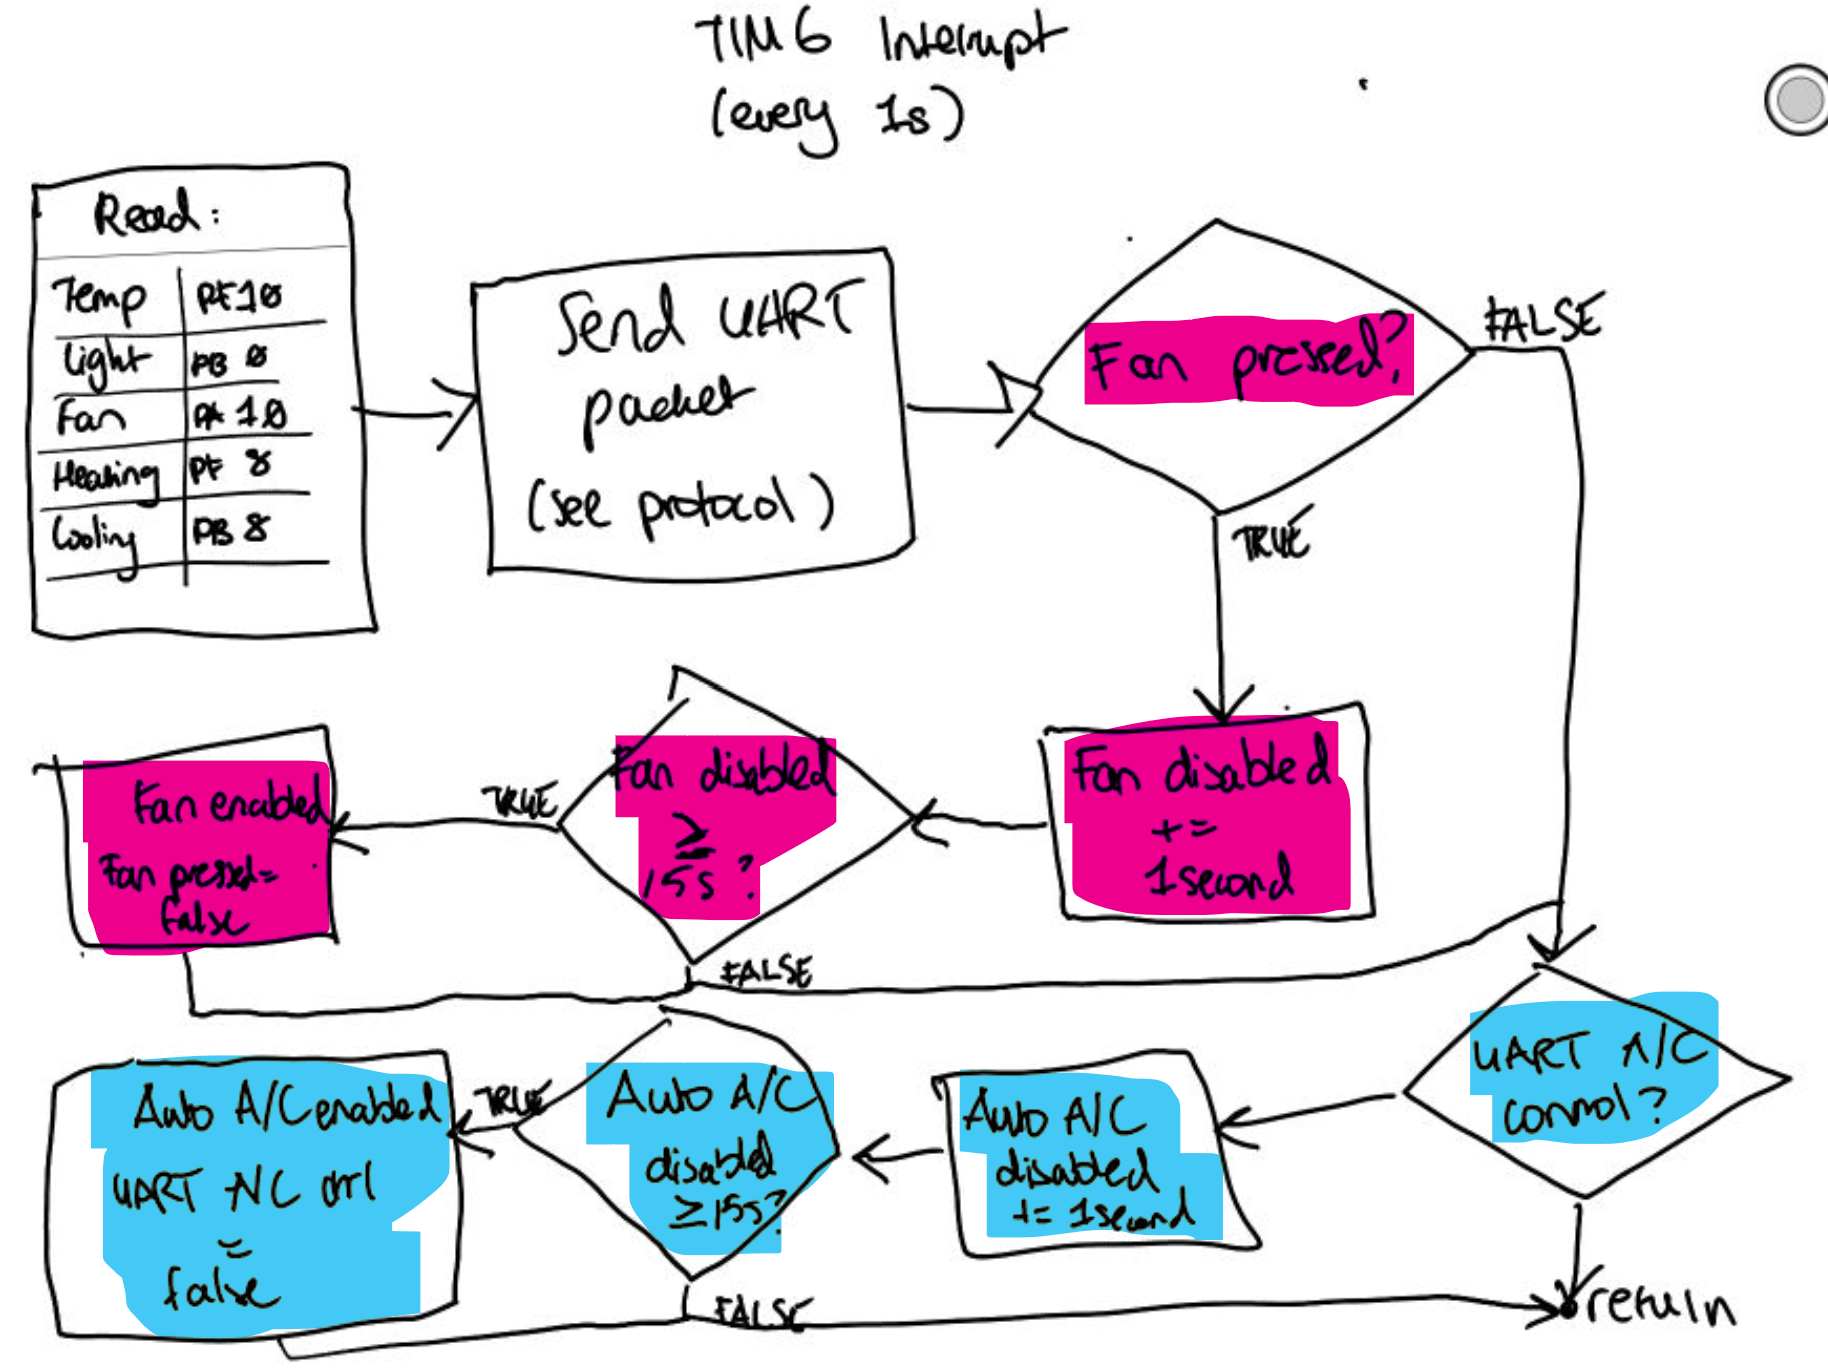 TIM6 Interrupt
(every 1s)
Read:
Temp PF10
Light PB 0
Fan PA 10
Heating PF 8
Cooling PB 8
Send UART
packet
(see protocol)
Fan pressed?
FALSE
TRUE
Fan disabled
+=
1second
Fan disabled
≥
15s?
TRUE
FALSE
Fan enabled
Fan pressed=
false
UART A/C
control?
Auto A/C
disabled
+= 1second
Auto A/C
disabled
≥15s?
TRUE
FALSE
Auto A/C enabled
UART A/C ctrl
=
false
return